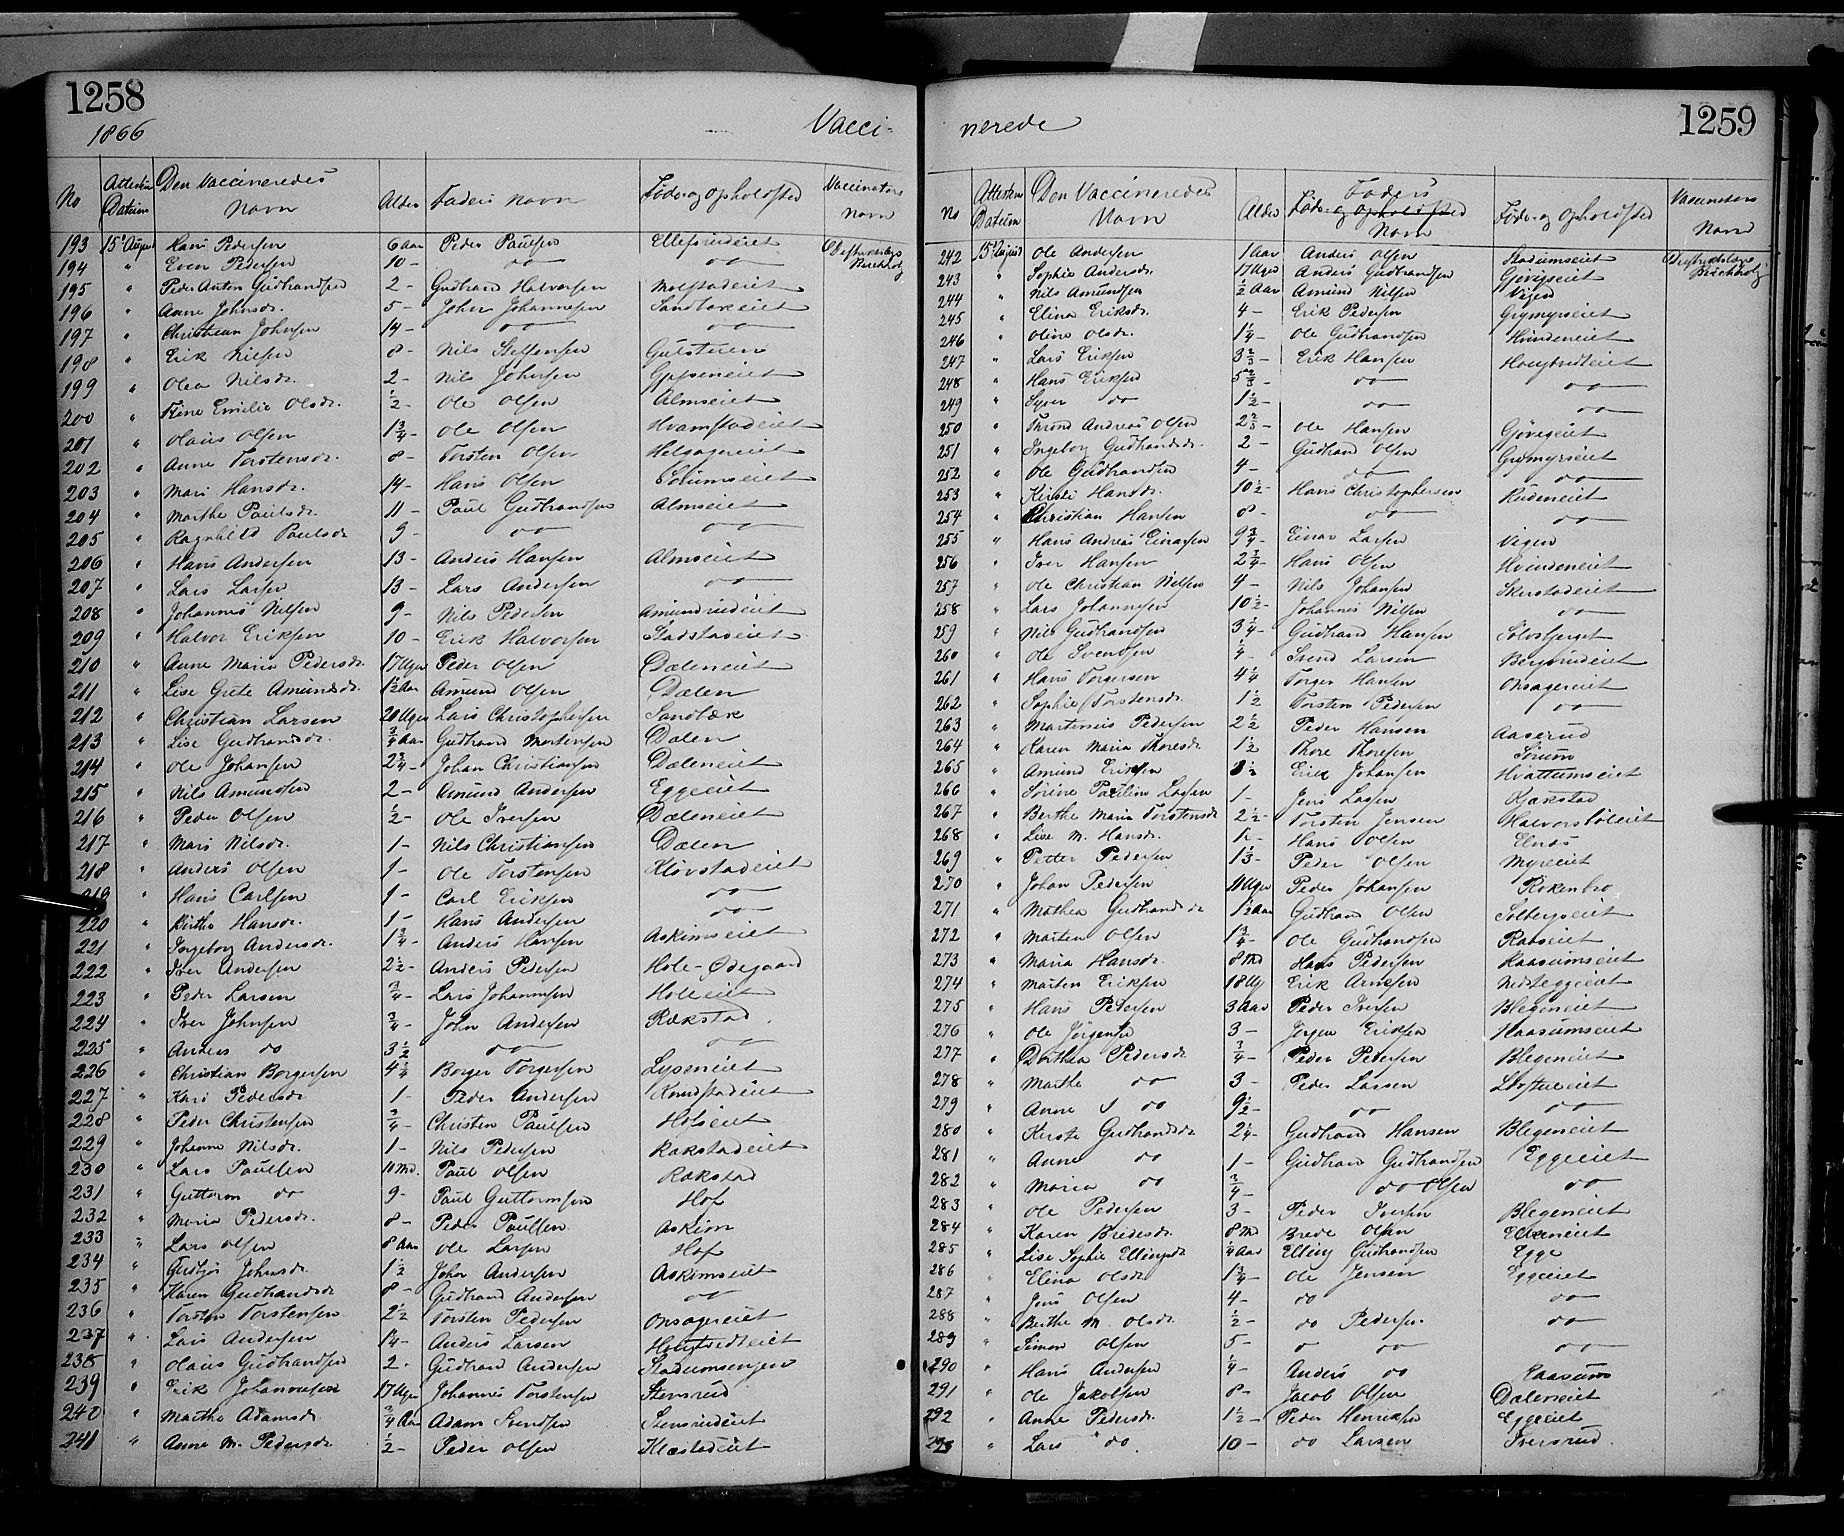 1258
1866
Vacci-
No | Attestens Datum | Den Vaccineredes Navn | Alder | Faders Navn | Føde- og Opholdsted | Vaccinators Navn
193 15de August Hans Pedersen 6 Aar Peder Paulsen Ellefsrudeiet
194 " Even Pedersen 10 - do do
195 " Peder Anton Gudbrandsen 2 - Gudbrand Halvorsen
196 " Anne Johnsdr. 5 - John Johannesen Sandbækeiet
197 " Christian Johnsen 14 - do do
198 " Erik Nilsen 8 - Nils Steffensen
199 " Olea Nilsdr. 2 - Nils Johnsen
200 " Emilie Olsdr. 1/2 - Ole Olsen Almseiet
201 " Olaus Olsen 1 3/4 - Ole Olsen Hvamstadeiet
202 " Anne Torstensdr. 8 - Torsten Olsen Helgagereiet
203 " Mari Hansdr. 14 - Hans Olsen Sørumseiet
204 " Marthe Paulsdr. 11 - Paul Gudbrandsen Almseiet
205 " Ragnhild Paulsdr 9 - do do
206 " Hans Andersen 13 - Anders Hansen Almseiet
207 " Lars Larsen 13 - Lars Andersen do
208 " Johannes Nilsen 9 - Nils Pedersen Amundrudeiet
209 " Halvor Eriksen 10 - Erik Halvorsen Stadstadeiet
210 " Anne Maria Pedersdr. 17 Uger Peder Olsen Dæleneiet
211 " Lise Grete Amundsdr. 1 1/2 Aar Amund Olsen Dælen
212 " Christian Larsen 20 Uger Lars Christophersen Sandbæk
213 " Lise Gudbrandsdr. 3/4 Aar Gudbrand Mortensen Dælen
214 " Ole Johansen 2 3/4 - Johan Christiansen Dæleneiet
215 " Nils Amundsen 2 - Amund Andersen Eggeeiet
216 " Peder Olsen 1/2 - Ole Iversen Dæleneiet
217 " Mari Nilsdr. 1 - Nils Christiansen Dælen
218 " Anders Olsen 1 - Ole Torstensen Kløvstadeiet
219 " Hans Carlsen 1 - Carl Eriksen do
220 " Berthe Hansdr. 1 - Hans Andersen do
221 " Ingeborg Andersdr. 1 3/4 - Anders Hansen Askimseiet
222 " Iver Andersen 2 1/2 - Anders Pedersen Hole-Ødegaard
223 " Peder Larsen 3/4 - Lars Johannesen Holeeiet
224 " Iver Johnsen 3/4 - John Andersen Rækstad
225 " Anders do 3 1/2 do do
226 " Christian Borgersen 4 1/4 Borger Torgersen Lyseneiet
227 " Kari Pedersdr 1 - Peder Andersen Knudstadeiet
228 " Peder Christensen 3/4 - Christen Paulsen Hofseiet
229 " Johanne Nilsdr. 1 - Nils Pedersen Rækstadeiet
230 " Lars Paulsen 10 Md. Paul Olsen Rækstad
231 " Guttorm do 9 - Paul Guttormsen Hof
232 " Maria Pedersdr. 8 - Peder Paulsen Askim
233 " Lars Olsen 8 Aar Ole Larsen Hof
234 " Johnsdr. 1 1/2 John Andersen Askimseiet
235 " Karen Gudbrandsdr 8 - Gudbrand Andersen do
236 " Torsten Torstensen 2 1/2 Torsten Pedersen Onsagereiet
237 " Lars Andersen 1 1/4 - Anders Larsen
238 " Olaus Gudbrandsen 2 - Gudbrand Andersen Stadumsengen
239 " Erik Johannesen 17 Uger Johannes Torstensen Stensrud
240 " Marthe Adamsdr. 3/4 Aar Adam Svendsen Stensrudeiet
241 " Anne M. Pedersdr 1/2 - Peder Olsen Klæstadeiet
1259
nerede
No | Attestens Datum | Den Vaccineredes Navn | Alder | Faders Navn | Føde- og Opholdsted | Vaccinators Navn
242 15de August Ole Andersen 1 Aar Anders Olsen Stadumseiet
243 " Sophie Andersdr. 17 Uger Anders Gudbrandsen Gjøvigseiet
244 " Nils Amundsen 1/2 Aar Amund Nilsen Vigen
245 " Elina Eriksdr. 4 - Erik Pedersen Grymyrseiet
246 " Oline Olsdr. 1 1/4 - Ole Gudbrandsen Hvindeneiet
247 " Lars Eriksen 3 2/3 - Erik Hansen
248 " Hans Eriksen 5 2/3 - do do
249 " Syver do 1 1/2 - do do
250 " Thrond Andreas Olsen 2 2/3 - Ole Hansen Gjøvigeiet
251 " Ingeborg Gudbrandsdr. 2 - Gudbrand Olsen Grymyrseiet
252 " Ole Gudbrandsen 4 - do do
253 " Kirsti Hansdr. 10 1/2 - Hans Christophersen Rudeneiet
254 " Christian Hansen 8 - do do
255 " Hans Andreas Einarsen 9 3/4 - Einar Larsen Vigen
256 " Iver Hansen 2 3/4 - Hans Olsen Hvindeneiet
257 " Ole Christian Nilsen 4 - Nils Johansen Skiaestadeiet
258 " Lars Johannesen 10 1/2 - Johannes Nilsen do
259 " Nils Gudbrandsen 3 1/4 - Gudbrand Hansen Sølvsberget
260 " Ole Svendsen 1/4 - Svend Larsen Bergsrudeiet
261 " Hans Torgersen 4 1/4 Torger Hansen Onsagereiet
262 " Sophie Torstensdr. 1 1/2 Torsten Pedersen do
263 " Martinius Pedersen 2 1/2 Peder Hansen Aaserud
264 " Karen Maria Thoresdr. 1 1/2 Thore Thoresen Sørum
265 " Amund Eriksen 8 1/2 Erik Johansen Hvattumseiet
266 " Sørine Pauline Larsen 1 - Jens Larsen Kjækstad
267 " Berthe Maria Torstensdr 2 1/2 - Torsten Jensen Halvorsbøleiet
268 " Lise M. Hansdr. 1 1/2 - Hans Olsen Elnæs
269 " Petter Pedersen 1 1/3 - Peder Olsen Myreeiet
270 " Johan Pedersen 11 Uger Peder Johansen Rokenbro
271 " Mathea Gudbrandsdr 1 1/2 Aar Gudbrand Olsen Solbergseiet
272 " Marten Olsen 1 3/4 - Ole Gudbrandsen Raaseiet
273 " Maria Hansdr. 8 Md Hans Pedersen Raasumseiet
274 " Marten Eriksen 18 Ug Erik Arnesen Nedreeggeeiet
275 " Hans Pedersen 3 Aar Peder Iversen Blegeneiet
276 " Ole Jørgensen 3 - Jørgen Eriksen Raasumseiet
277 " Dorthea Pedersdr 3/4 - Peder Pedersen Blegeneiet
278 " Marthe do 3 - Peder Larsen
279 " Anne do 9 1/2 - do do
280 " Kirste Gudbrandsdr 2 1/4 - Gudbrand Hansen Blegeneiet
281 " Anne do 1 - Gudbran Gudbrandsen Eggeeiet
282 " Maria do 3/4 - do Olsen do
283 " Ole Pedersen 3 - Peder Iversen Blegeneiet
284 " Karen Bredesdr 8 Md Brede Olsen
285 " Lise Sophie Ellingsdr 1/4 Aar Elling Gudbrandsen Egge
286 " Elina Olsdr 1 3/4 - Ole Jensen Eggeeiet
287 " Jens Olsen 4 - do do
288 " Berthe M. Olsdr 1/2 - do Pedersen do
289 " Simon Olsen 5 - do do do
290 " Hans Andersen 1/4 - Anders do Raasum
291 " Ole Jakobsen 8 - Jacob Olsen Daleneiet
292 " Anne Pedersdr. 1 1/2 - Peder Henriksen Eggeeiet
293 " Lars do 10 - do Larsen Iversrud